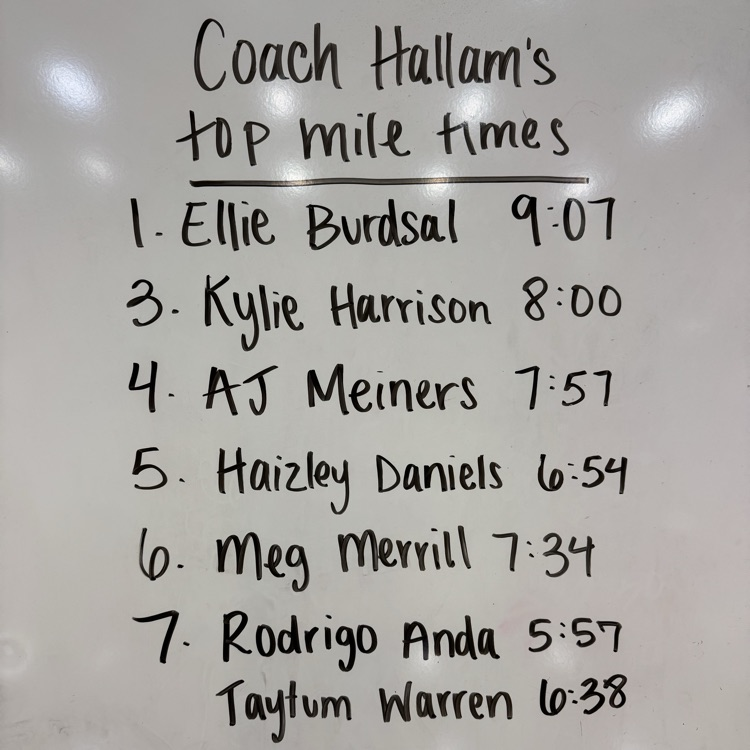 Coach Hallam's
top mile times
1. Ellie Burdsal 9:07
3. Kylie Harrison 8:00
4. AJ Meiners 7:57
5. Haizley Daniels 6:54
6. Meg Merrill 7:34
7. Rodrigo Anda 5:57
Taytum Warren 6:38